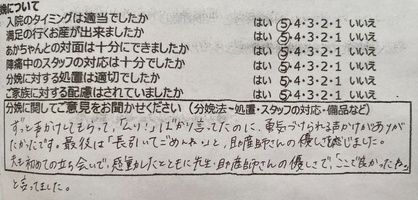 娩について
入院のタイミングは適当でしたか はい ⑤・4・3・2・1 いいえ
満足の行くお産が出来ましたか はい ⑤・4・3・2・1 いいえ
あかちゃんとの対面は十分にできましたか はい ⑤・4・3・2・1 いいえ
陣痛中のスタッフの対応は十分でしたか はい ⑤・4・3・2・1 いいえ
分娩に対する処置は適切でしたか はい ⑤・4・3・2・1 いいえ
ご家族に対する配慮はされていましたか はい ⑤・4・3・2・1 いいえ
分娩に関してご意見をお聞かせください（分娩法～処置・スタッフの対応・備品など）
ずっと声かけしてもらって、「ムリ！」ばかり言ってたのに、勇気づけられる声かけがありが
たかったです。最後は「長引いてごめんね」と、助産師さんの優しさを感じました。
夫も初めての立ち会いで、感動したとともに先生・助産師さんの優しさで、「ここで良かったね」
と言ってました。